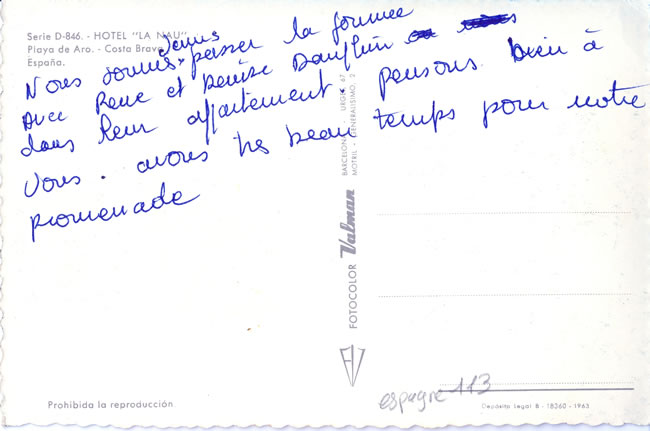 Serie D-846. - HOTEL "LA NAU"
Playa de Aro. - Costa Brava
España.
Nous sommes venus passer la journee
Avec Rene et Denise Dauphin
dans leur appartement. pensons bien à
vous. avons tres beau temps pour notre
promenade
BARCELONA - URGEL 67
MOTRIL - GENERALISIMO, 2
FOTOCOLOR Valman
espagne 113
Prohibida la reproducción.
Depósito Legal B - 18360 - 1963